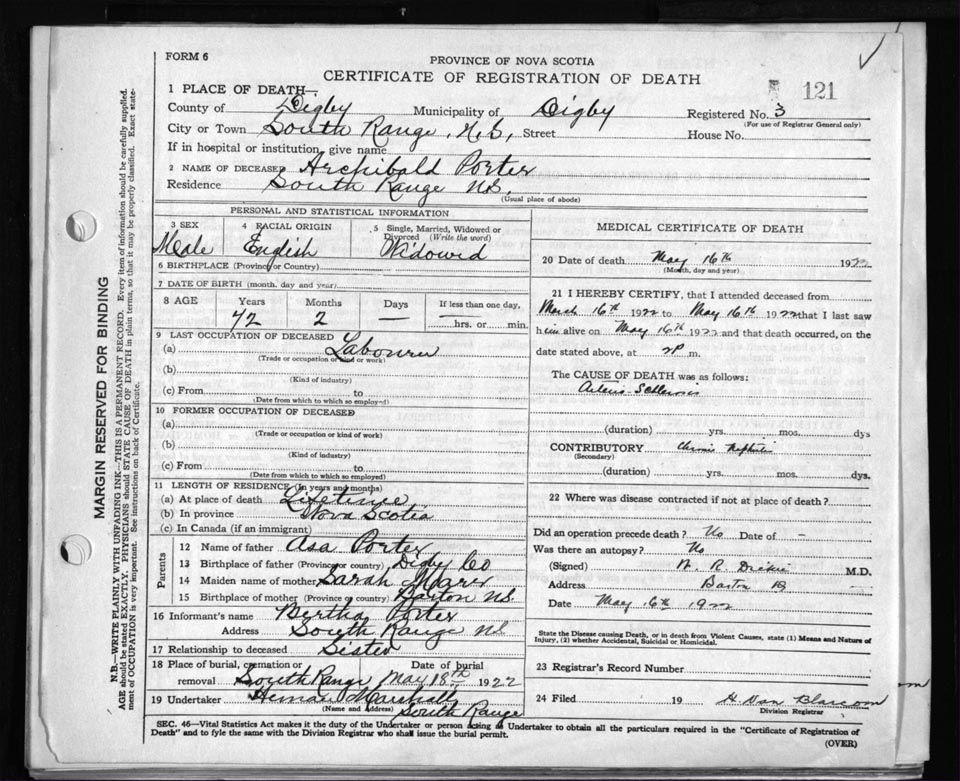 FORM 6
PROVINCE OF NOVA SCOTIA
CERTIFICATE OF REGISTRATION OF DEATH
121
1 PLACE OF DEATH—
County of Digby Municipality of Digby Registered No. 3
(For use of Registrar General only)
City or Town South Range, N.S, Street House No.
If in hospital or institution, give name
2 NAME OF DECEASED Archibald Porter
Residence South Range NS.
(Usual place of abode)
PERSONAL AND STATISTICAL INFORMATION
3 SEX 4 RACIAL ORIGIN 5 Single, Married, Widowed or Divorced (Write the word)
Male English Widowed
6 BIRTHPLACE (Province or Country)
7 DATE OF BIRTH (month, day and year)
8 AGE Years Months Days If less than one day,
72 2 — — hrs. or min.
9 LAST OCCUPATION OF DECEASED
(a) Labourer
(Trade or occupation or kind or work)
(b)
(Kind of industry)
(c) From to
(Date from which to which so employed)
10 FORMER OCCUPATION OF DECEASED
(a)
(Trade or occupation or kind of work)
(b)
(Kind of industry)
(c) From to
(Date from which to which so employed)
11 LENGTH OF RESIDENCE (In years and months)
(a) At place of death Lifetime
(b) In province Nova Scotia
(c) In Canada (if an immigrant)
Parents
12 Name of father Asa Porter
13 Birthplace of father (Province or country) Digby Co
14 Maiden name of mother Sarah
15 Birthplace of mother (Province or country) Barton NS.
16 Informant's name Bertha Porter
Address South Range NS
17 Relationship to deceased Sister
18 Place of burial, cremation or Date of burial
removal South Range May 18th 1922
19 Undertaker Heman Marshall
(Name and address) South Range
MEDICAL CERTIFICATE OF DEATH
20 Date of death May 16th 1922
(Month, day and year)
21 I HEREBY CERTIFY, that I attended deceased from
March 16th 1922 to May 16th 1922 that I last saw
him alive on May 16th 1922 and that death occurred, on the
date stated above, at 2P m.
The CAUSE OF DEATH was as follows:
Arterio Sclerosis
(duration) yrs. mos. dys
CONTRIBUTORY Chronic Nephritis
(Secondary)
(duration) yrs. mos. dys.
22 Where was disease contracted if not at place of death?
Did an operation precede death? No Date of —
Was there an autopsy? No
(Signed) M.D.
Address Barton
Date May 16th 1922
State the Disease causing Death, or in death from Violent Causes, state (1) Means and Nature of
Injury, (2) whether Accidental, Suicidal or Homicidal.
23 Registrar's Record Number
24 Filed 19 H Van Blarcom
Division Registrar
SEC. 46—Vital Statistics Act makes it the duty of the Undertaker or person acting as Undertaker to obtain all the particulars required in the "Certificate of Registration of
Death" and to fyle the same with the Division Registrar who shall issue the burial permit.
(OVER)
MARGIN RESERVED FOR BINDING
N.B.—WRITE PLAINLY WITH UNFADING INK—THIS IS A PERMANENT RECORD. Every item of information should be carefully supplied.
AGE should be stated EXACTLY. PHYSICIANS should STATE CAUSE OF DEATH in plain terms, so that it may be properly classified. Exact state-
ment of OCCUPATION is very important. See instructions on back of Certificate.